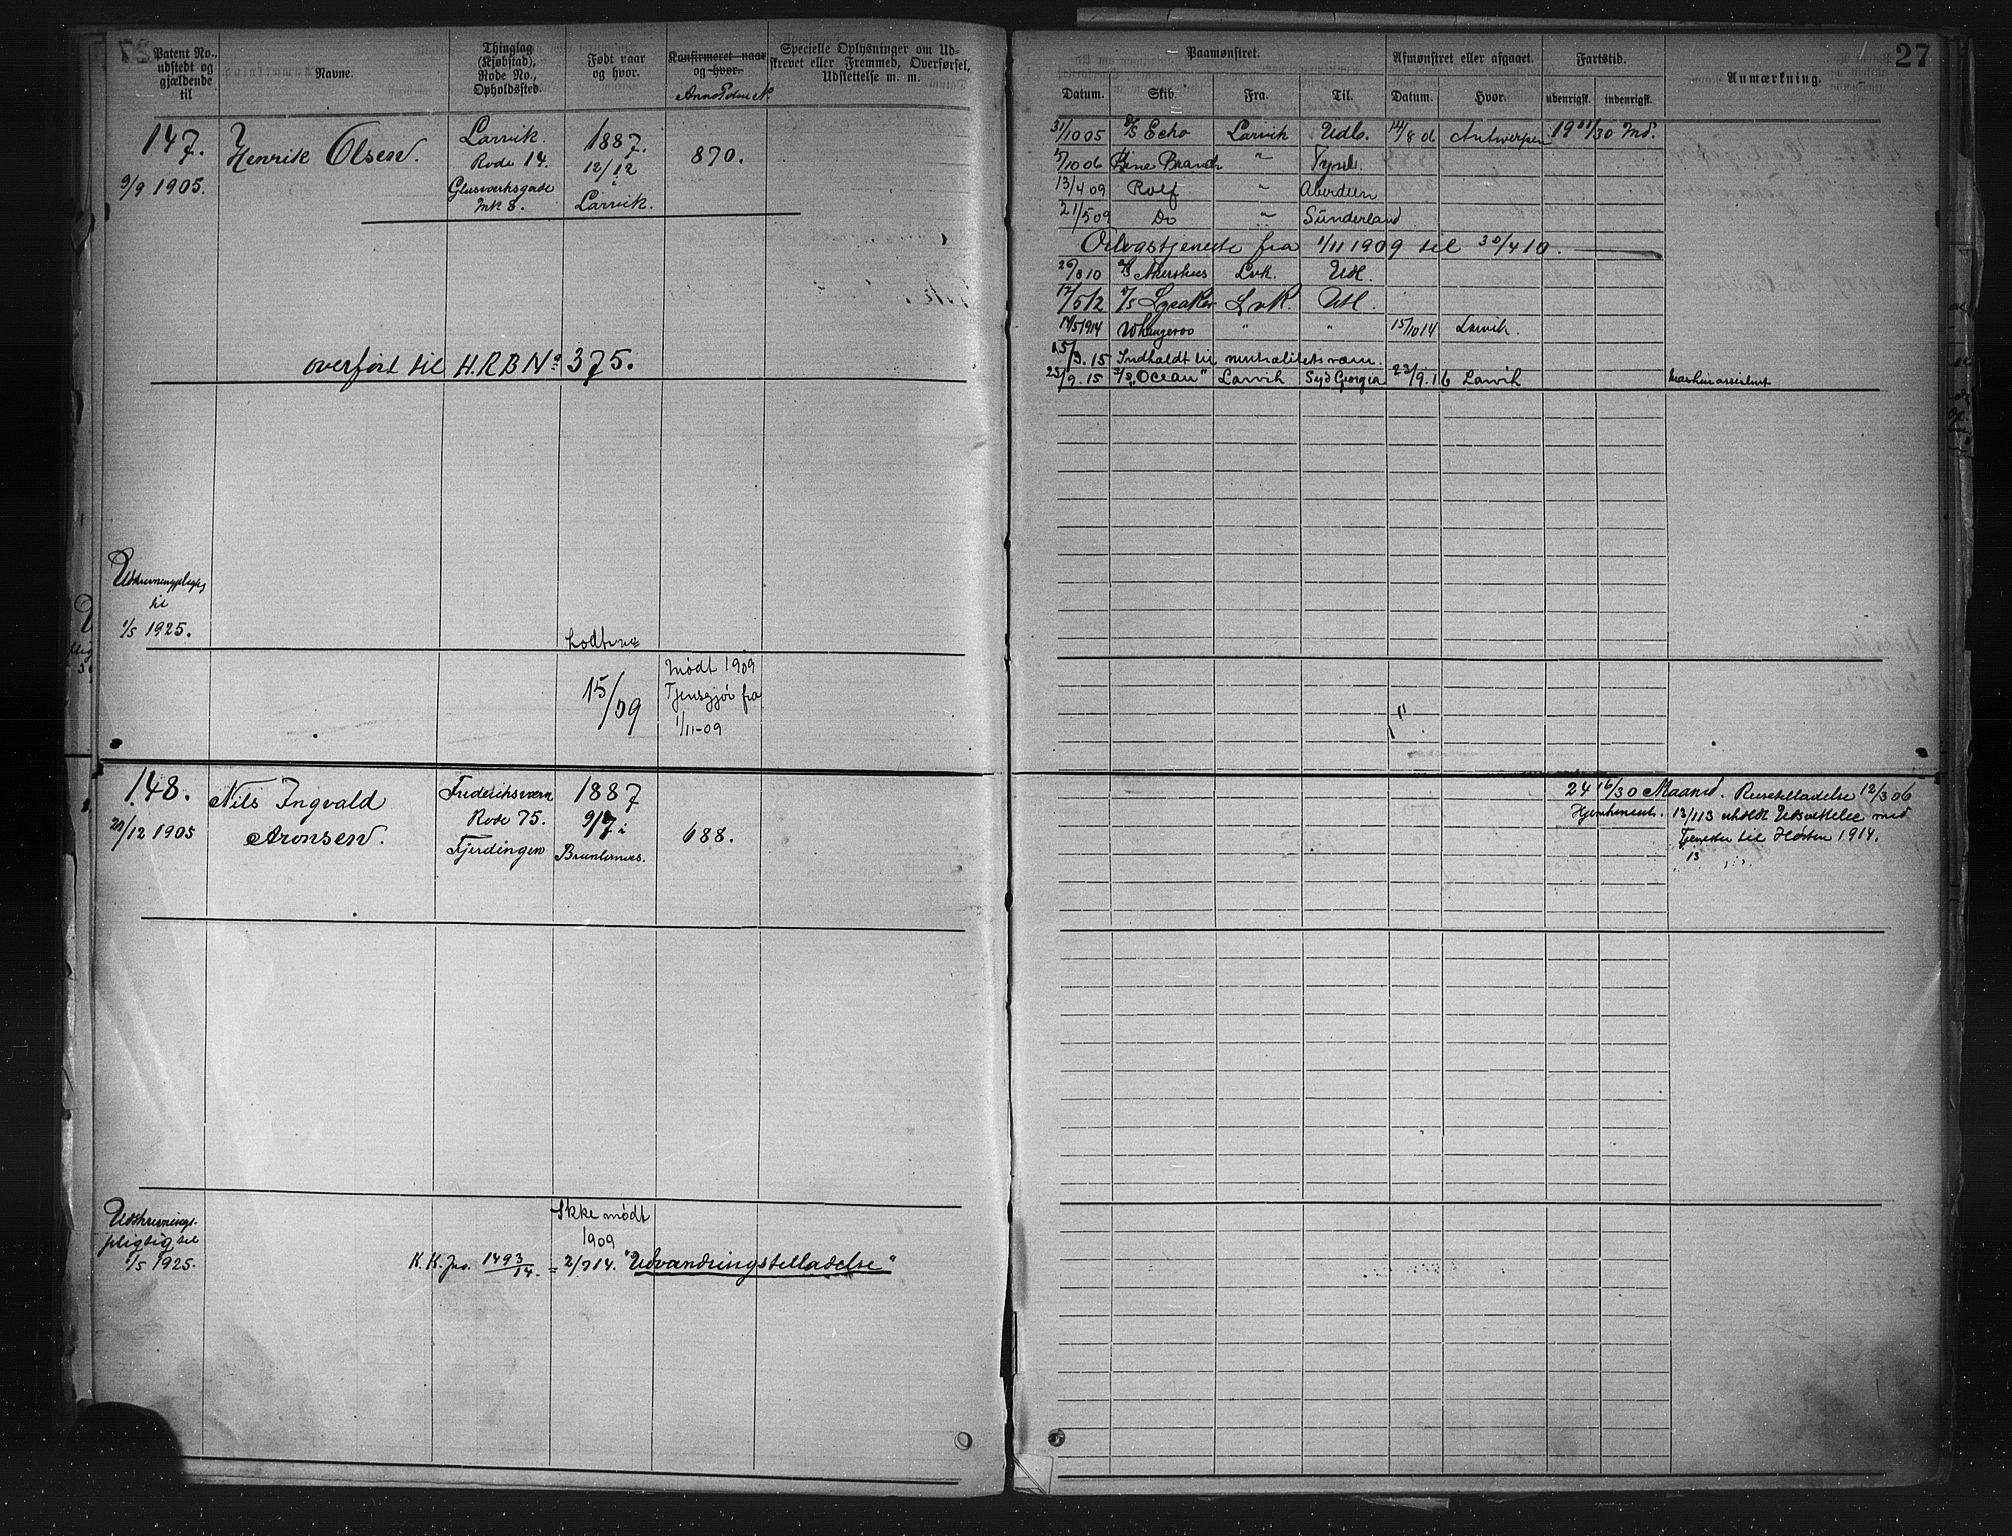 Patent No.,
udstedt og
gjældende
til
Navne.
Thinglag
(Kjøbstad),
Rode No.,
Opholdssted.
Født naar
og hvor.
Konfirmeret naar
og hvor.
Specielle Oplysninger om Ud-
skrevet eller Fremmed, Overførsel,
Udslettelse m. m.
147.
9/9 1905.
Henrik Olsen.
Larvik.
Rode 14.
Glasværksgade
Mk 8.
1887.
12/12
i
Larvik.
870.
overført til H.R.B No 375.
Udskrivningspligtig
til
1/5 1925.
15/09
Mødt 1909
Tjensgjør fra
1/11-09
148.
21/12 1905
Nils Ingvald
Aronsen.
Frederiksværn
Rode 75.
Fjerdingen
1887
9/7 i
Brunlanæs.
688.
Udskrivnings-
pligtig til
1/5 1925.
Ikke mødt
1909
K.K. jno. 1493/14. = 2/7 14. "Udvandringstilladelse"
27
Paamønstret.
Afmønstret eller afgaaet.
Fartstid.
Anmærkning.
Datum.
Skib.
Fra.
Til.
Datum.
Hvor.
udenrigsk.
indenrigsk.
31/10 05 D/S Echo Larvik Udl. 14/8 06 Antwerpen 19 21/30 Md.
5/10 06 Bine Branch " Tyne.
13/4 09 Rolf " Aberdeen
21/5 09 Do " Sunderland
Orlogstjeneste fra 1/11 1909 til 30/4 10.
26/8 10 D/S Akershus Lvk. Udl.
17/5 12 D/S Lysaker Lvk. Utl.
14/5 1914 Whangeroo " " 15/10 14 Larvik.
15/3.15 Indkaldt til neutralitetsværn.
23/9.15 D/S "Ocean" Larvik Syd Georgia 23/9.16 Larvik Maskinassistent
24 16/30 Maaned. Reisetilladelse 12/3 06
Hjemkommet. 13/1 13 erholdt Udsættelse med
Tjenesten til Høsten 1914.
13